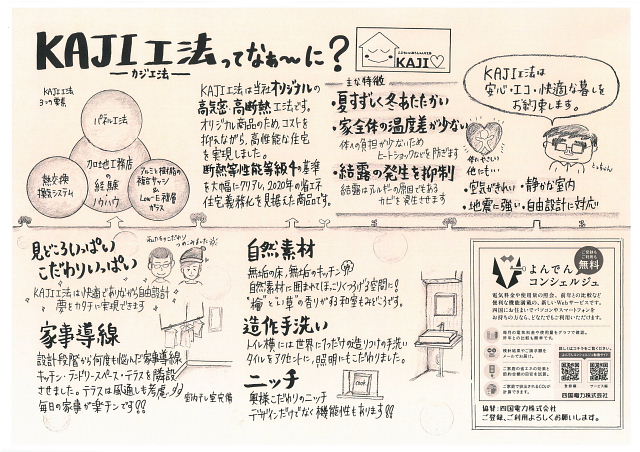 KAJI工法ってなぁ〜に？
ーカジ工法ー
KAJI♡
KAJI工法
3つの要素
パネル工法
加地工務店
の
経験
ノウハウ
熱交換
換気システム
アルミと樹脂の
複合サッシ
&
Low-E複層
ガラス
KAJI工法は当社オリジナルの
高気密・高断熱工法です。
オリジナル商品のため、コストを
抑えながら、高性能な住宅
を実現しました。
断熱等性能等級4の基準
を大幅にクリアし、2020年の省エネ
住宅義務化を見据えた商品です。
主な特徴
・夏すずしく冬あたたかい
・家全体の温度差が少ない
体への負担が少ないため
ヒートショックなどを防ぎます
・結露の発生を抑制
結露はアレルギーの原因である
カビを発生させます
KAJI工法は
安心・エコ・快適な暮しを
お約束します。
体にやさしい
他にも…
・空気がきれい・静かな室内
・地震に強い・自由設計に対応
見どころいっぱい
こだわりいっぱい
KAJI工法は快適でありながら自由設計
夢もカタチに実現できます
家事導線
設計段階から何度も悩んだ家事導線
キッチン・ランドリースペース・テラスを隣設
させました。テラスは風通しも考慮
毎日の家事が楽チンです!!
室内干し室完備
自然素材
無垢の床、無垢のキッチン
自然素材に囲まれてほこっくつろげる空間に!
"檜"と"い草"の香りがする和室もみどころです。
造作手洗い
トイレ横には世界に1つだけの造りつけの手洗い
タイルをアクセントに、照明にもこだわりました。
ニッチ
奥様こだわりのニッチ
デザインだけでなく機能性もあります!!
ご登録も
ご利用も
無料
よんでん
コンシェルジュ
電気料金や使用量の照会、前年との比較など
便利な機能満載の、新しいWebサービスです。
四国にお住まいでパソコンやスマートフォンを
お持ちの方なら、どなたでもご利用いただけます。
四国電力株式会社
協賛：四国電力株式会社
ご登録、ご利用よろしくお願いします。